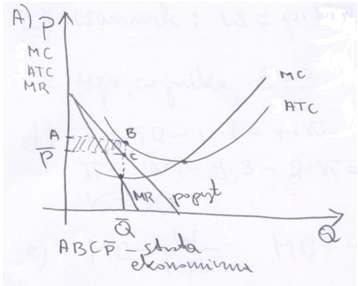 A) P
MC
ATC
MR
MC
ATC
A
B
P̄
C
MR
popyt
Q̄
Q
ABCP̄ - strata
ekonomiczna